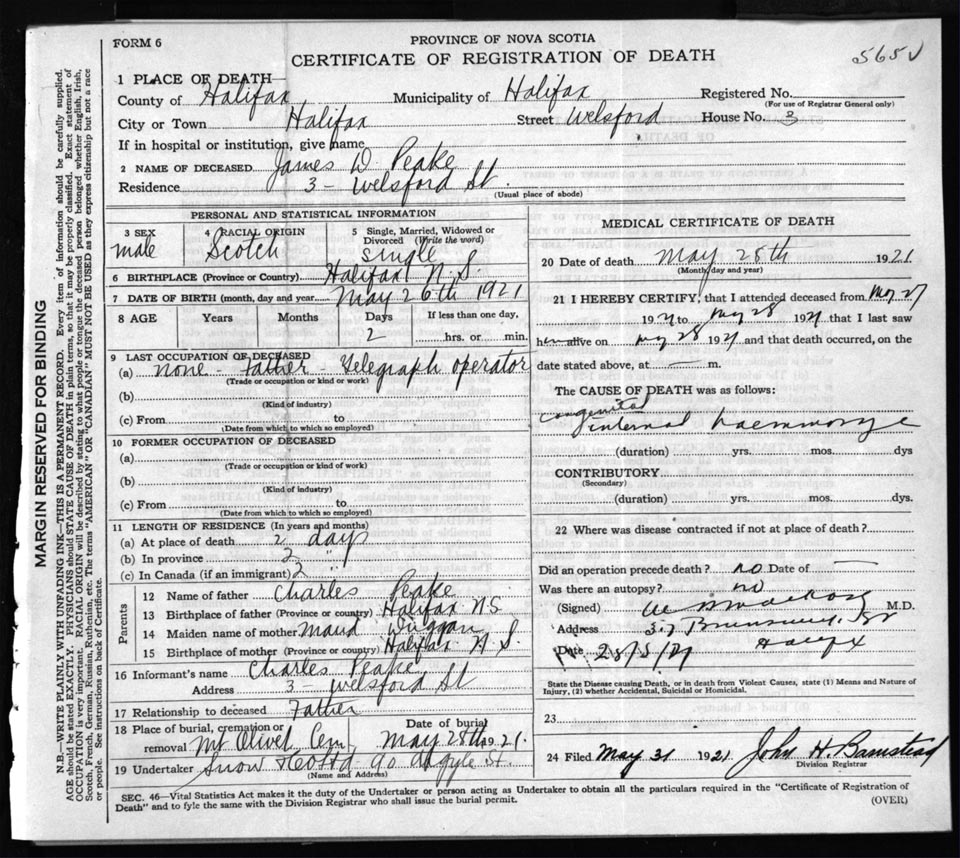 FORM 6
PROVINCE OF NOVA SCOTIA
CERTIFICATE OF REGISTRATION OF DEATH
1 PLACE OF DEATH—
County of Halifax Municipality of Halifax Registered No.
(For use of Registrar General only)
City or Town Halifax Street Welsford House No. 3
If in hospital or institution, give name
2 NAME OF DECEASED James W. Peake
Residence 3 - Welsford St.
(Usual place of abode)
PERSONAL AND STATISTICAL INFORMATION
3 SEX male 4 RACIAL ORIGIN Scotch 5 Single, Married, Widowed or Divorced (Write the word) single
6 BIRTHPLACE (Province or Country) Halifax N.S.
7 DATE OF BIRTH (month, day and year) May 26th 1921
8 AGE Years Months Days 2 If less than one day, hrs. or min.
9 LAST OCCUPATION OF DECEASED
(a) none - Father - Telegraph operator
(Trade or occupation or kind of work)
(b)
(Kind of industry)
(c) From to
(Date from which to which so employed)
10 FORMER OCCUPATION OF DECEASED
(a)
(Trade or occupation or kind of work)
(b)
(Kind of industry)
(c) From to
(Date from which to which so employed)
11 LENGTH OF RESIDENCE (In years and months)
(a) At place of death 2 days
(b) In province 2 "
(c) In Canada (if an immigrant) 2
Parents
12 Name of father Charles Peake
13 Birthplace of father (Province or country) Halifax NS
14 Maiden name of mother Maud Duggan
15 Birthplace of mother (Province or country) Halifax N.S.
16 Informant's name Charles Peake
Address 3 - Welsford St
17 Relationship to deceased Father
18 Place of burial, cremation or removal Mt Olivet Cem, Date of burial May 28th 1921.
19 Undertaker Snow 90 Argyle St.
(Name and Address)
MEDICAL CERTIFICATE OF DEATH
20 Date of death May 28th 1921
(Month, day and year)
21 I HEREBY CERTIFY, that I attended deceased from May 27
1921 to May 28 1921 that I last saw
him alive on May 28 1921 and that death occurred, on the
date stated above, at m.
The CAUSE OF DEATH was as follows:
Congenital
internal haemmorage
(duration) yrs. mos. dys
CONTRIBUTORY
(Secondary)
(duration) yrs. mos. dys.
22 Where was disease contracted if not at place of death?
Did an operation precede death? no Date of —
Was there an autopsy? no
(Signed) M.D.
Address Brunswick St
Halifax
Date 28/5/21
State the Disease causing Death, or in death from Violent Causes, state (1) Means and Nature of
Injury, (2) whether Accidental, Suicidal or Homicidal.
23
24 Filed May 31 1921 John H. Barnstead
Division Registrar
SEC. 46—Vital Statistics Act makes it the duty of the Undertaker or person acting as Undertaker to obtain all the particulars required in the "Certificate of Registration of
Death" and to fyle the same with the Division Registrar who shall issue the burial permit.
(OVER)
565
MARGIN RESERVED FOR BINDING
N.B.—WRITE PLAINLY WITH UNFADING INK—THIS IS A PERMANENT RECORD. Every item of information should be carefully supplied.
AGE should be stated EXACTLY. PHYSICIANS should STATE CAUSE OF DEATH in plain terms, so that it may be properly classified. Exact statement of
OCCUPATION is very important. RACIAL ORIGIN will be described by stating to what people or tongue the deceased person belonged whether English, Irish,
Scotch, French, German, Russian, Ruthenian, etc. The terms "AMERICAN" OR "CANADIAN" MUST NOT BE USED as they express citizenship but not a race
or people. See instructions on back of Certificate.